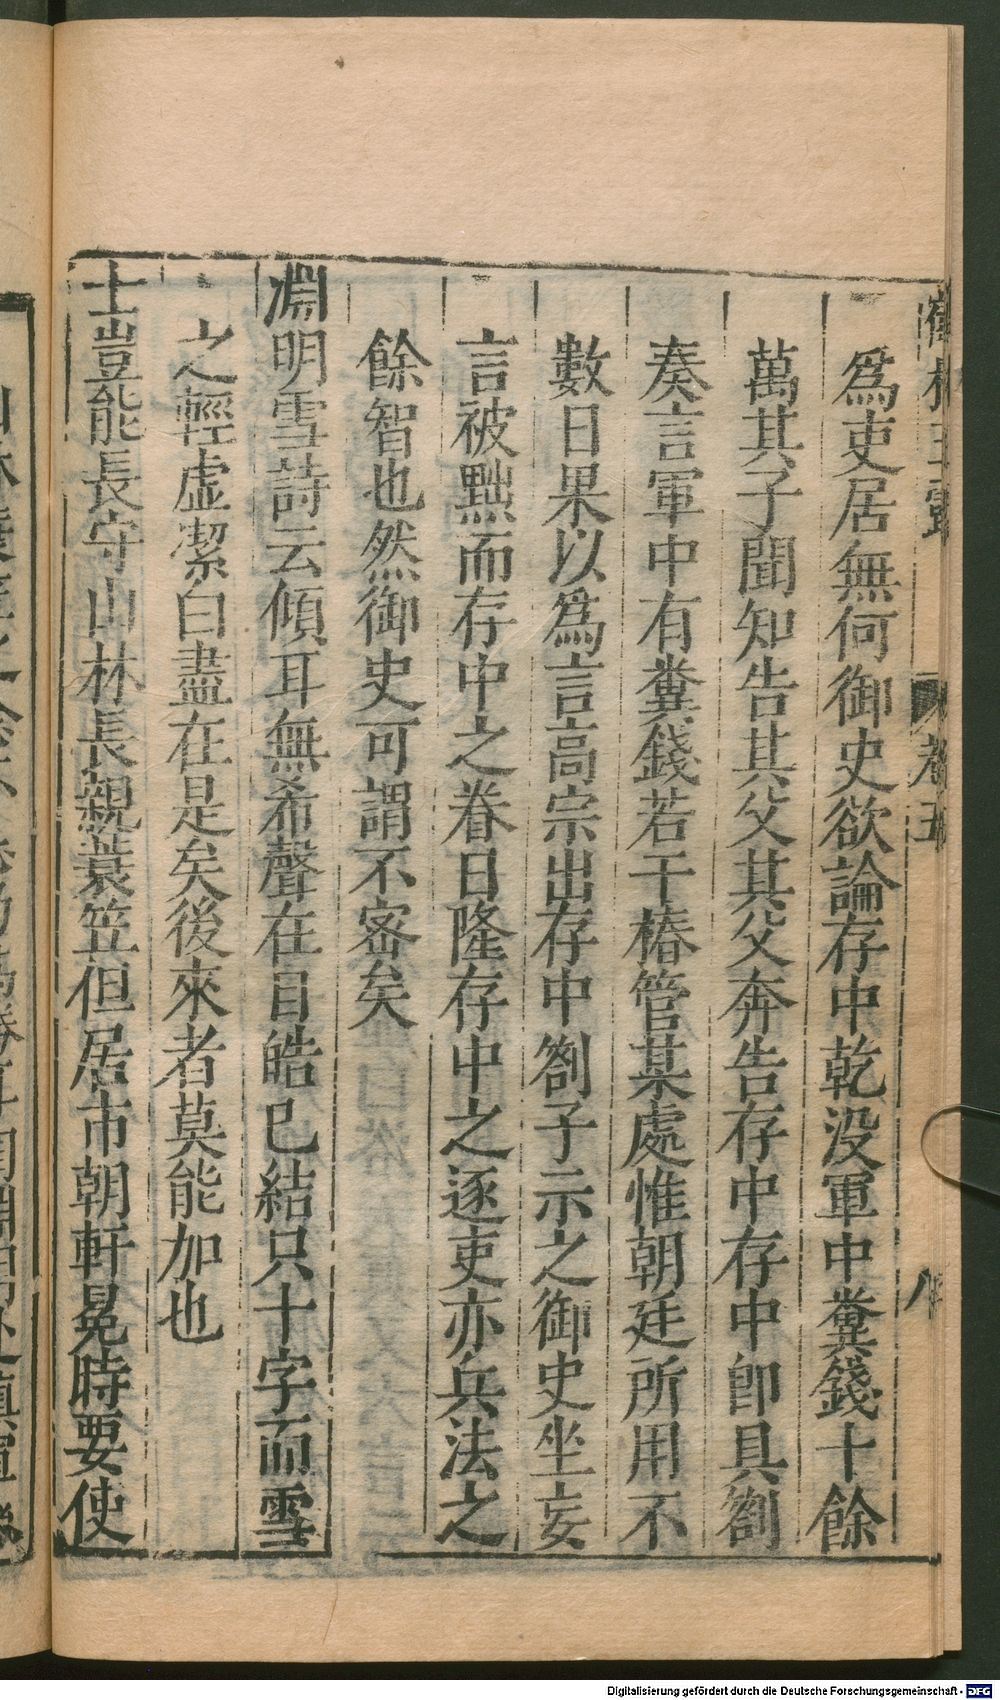 鶴林玉露 卷五 八
爲吏居無何御史欲論存中乾没軍中糞錢十餘
萬其子聞知告其父其父奔告存中存中卽具劄
奏言軍中有糞錢若干樁管某處惟朝廷所用不
數日果以爲言高宗出存中劄子示之御史坐妄
言被黜而存中之眷日隆存中之逐吏亦兵法之
餘智也然御史可謂不密矣
淵明雪詩云傾耳無希聲在目皓已結只十字而雪
之輕虛潔白盡在是矣後來者莫能加也
士豈能長守山林長親蓑笠但居市朝軒冕時要使
Digitalisierung gefördert durch die Deutsche Forschungsgemeinschaft - DFG